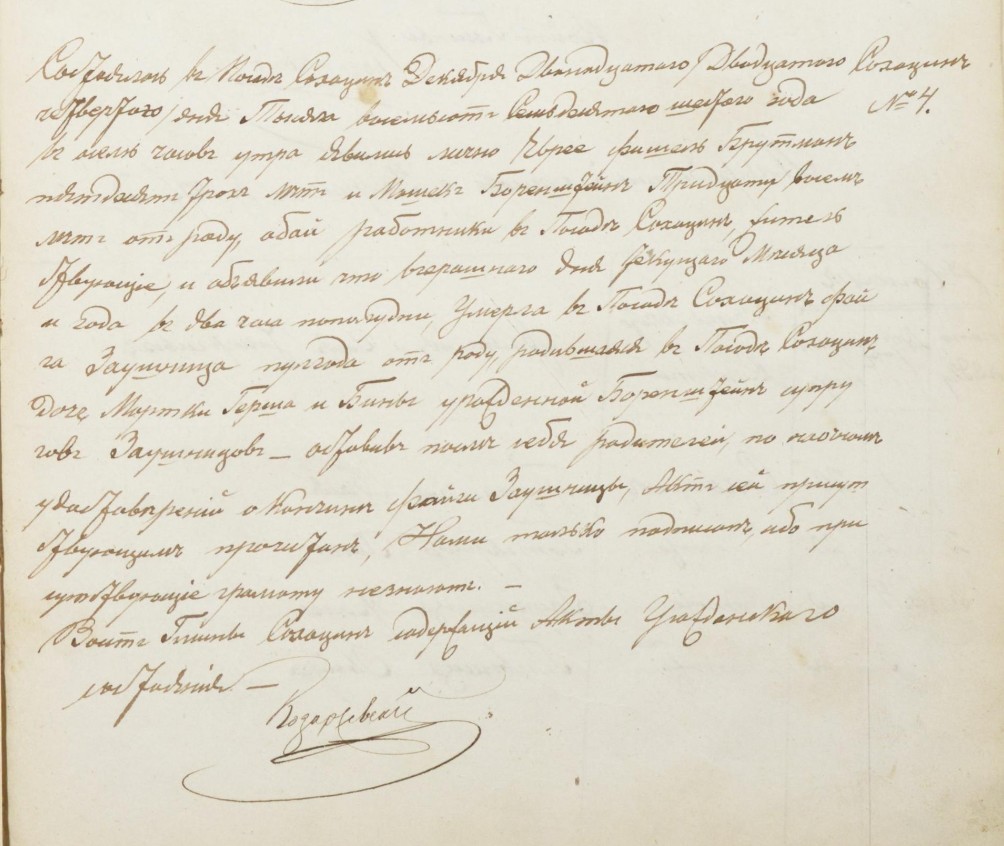 Состоялось въ Посадѣ Сохоцинъ Декабря Двѣнадцатаго/Двадцатого Сохоцинъ
четвертого/дня Тысяча восемьсотъ Семьдесятого шестого года № 4.
въ восемь часовъ утра явились лично Евреи Фишель Грутманъ
пятьдесятъ трохъ лѣтъ и Мошекъ Боренштейнъ Тридцати/восемъ
лѣтъ отъ роду, обай работники въ Посадѣ Сохоцинѣ жителъ
ствующіе, и объявили что вчерашнаго дня текущаго Мѣсяца
и года въ два часа пополудни, умерла въ Посадѣ Сохоцинъ Фай
га Заушница полгода отъ роду, родившаяся въ Посадѣ Сохоцинѣ
дочь Мортки Герша и Бины урожденной Боренштейнъ супру
говъ Заушницовъ — оставивъ послѣ себя родителей, по наочномъ
удостоверений о кончинѣ Файги Заушницы, Актъ сей присут
ствующимъ прочитанъ, Нами только подписанъ, ибо при
сутствующіе грамоту незнаютъ. —
Войтъ Гмины Сохоцинъ содержащій Акты Гражданскаго
состоянія. —